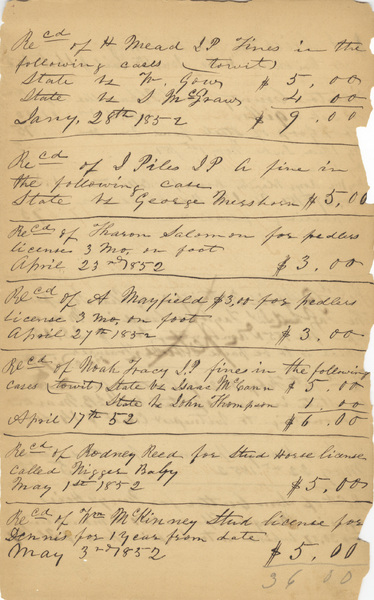 Recd of H Mead J.P Fines in the
following cases (towit)
State vs W. Gow $ 5.00
State vs J McGraw 4 00
Jany. 28th 1852 $ 9.00
Recd of J Piles JP A fine in
the following case
State vs George Mershorn $5,00
Recd of Tharon Salomon for pedlers
license 3 Mo, on foot
April 23rd 1852 $3.00
Recd of A Mayfield $3,00 for pedlers
license 3 mo, on foot
April 27th 1852 $3.00
Recd of Noah Tracy J.P fines in the following
cases (towit) State vs Isaac McCann $ 5.00
State vs John Thompson 1.00
April 17th 52 $6.00
Recd of Rodney Reed for Stud Horse license
called Nigger Baby
May 1st 1852 $5.00
Recd of Wm McKinney Stud license for
Dennis for 1 year from date
May 3rd 1852 $5.00
36 00